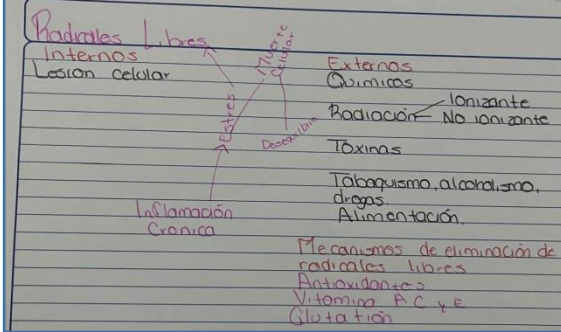 Radicales Libres
Internos
Lesión celular
Muerte
celular
Estres
Desequilibrio
Inflamación
Cronica
Externos
Químicos
Radiación Ionizante
No ionizante
Toxinas
Tabaquismo, alcoholismo,
drogas
Alimentación.
Mecanismos de eliminación de
radicales libres
Antioxidantes
Vitamina A C y E
Glutatión